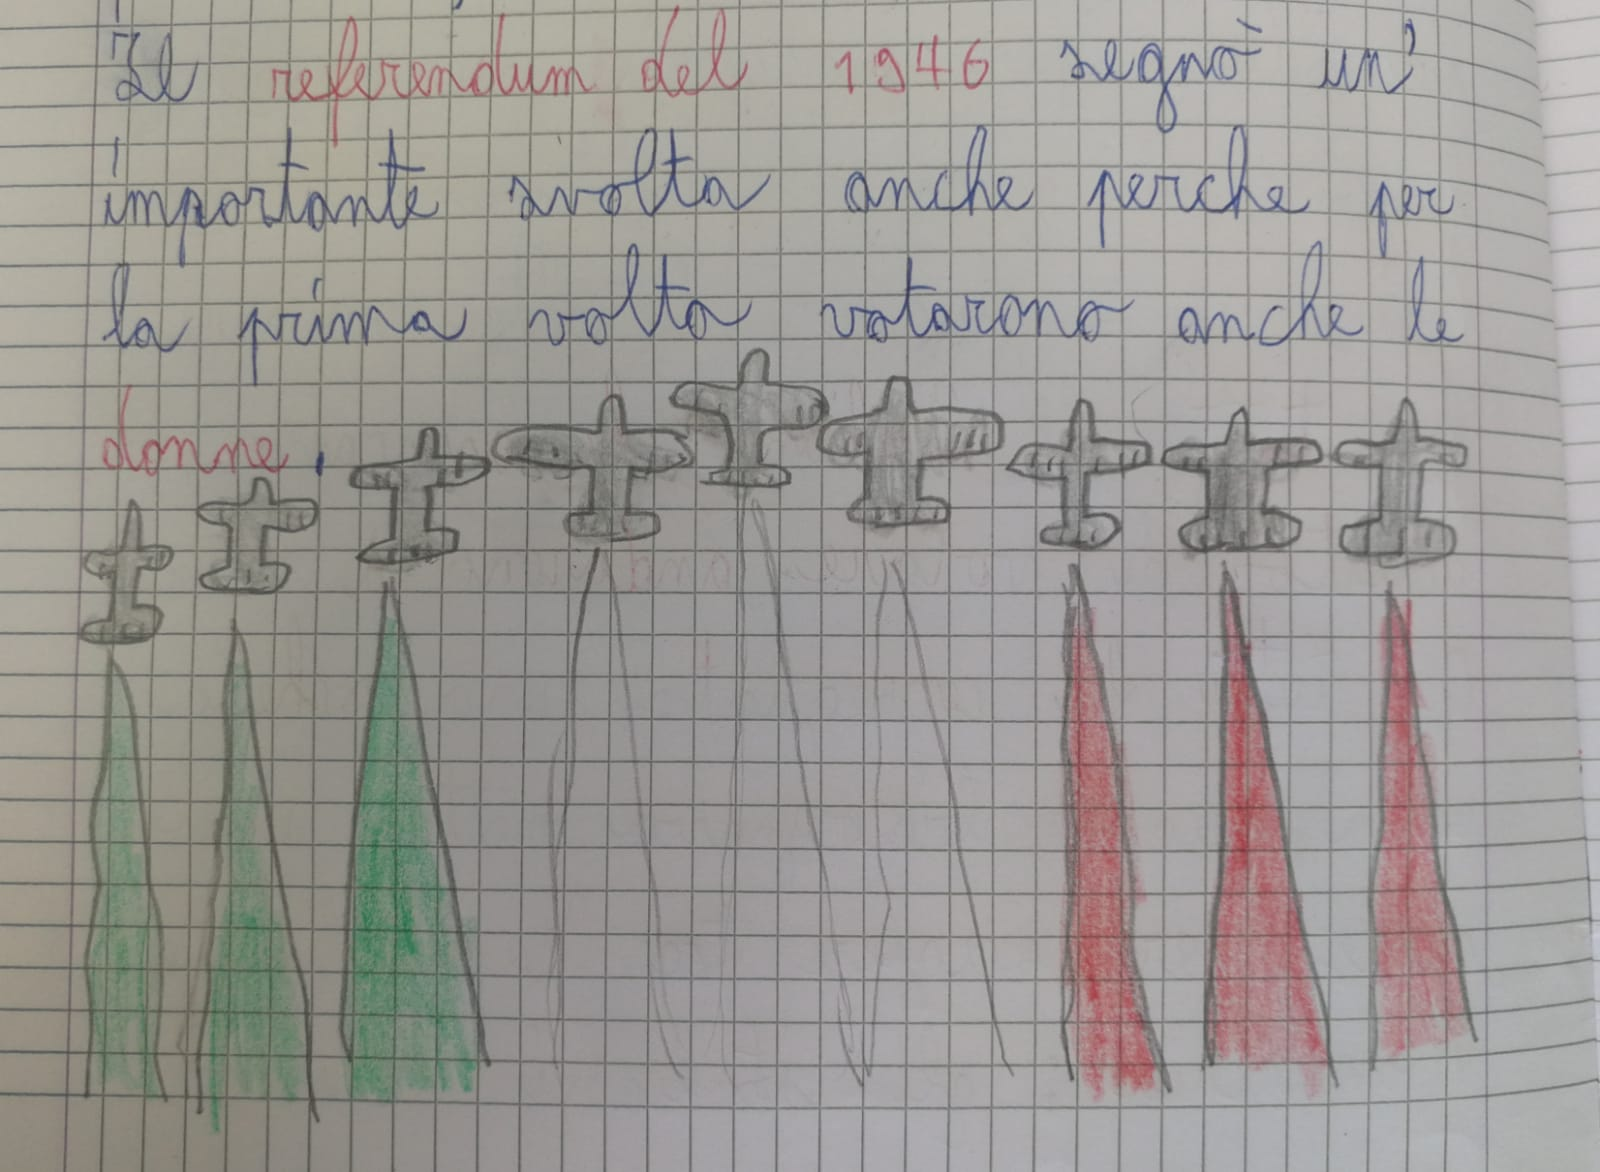 Il referendum del 1946 segnò un'
importante svolta anche perche per
la prima volta votarono anche le
donne.